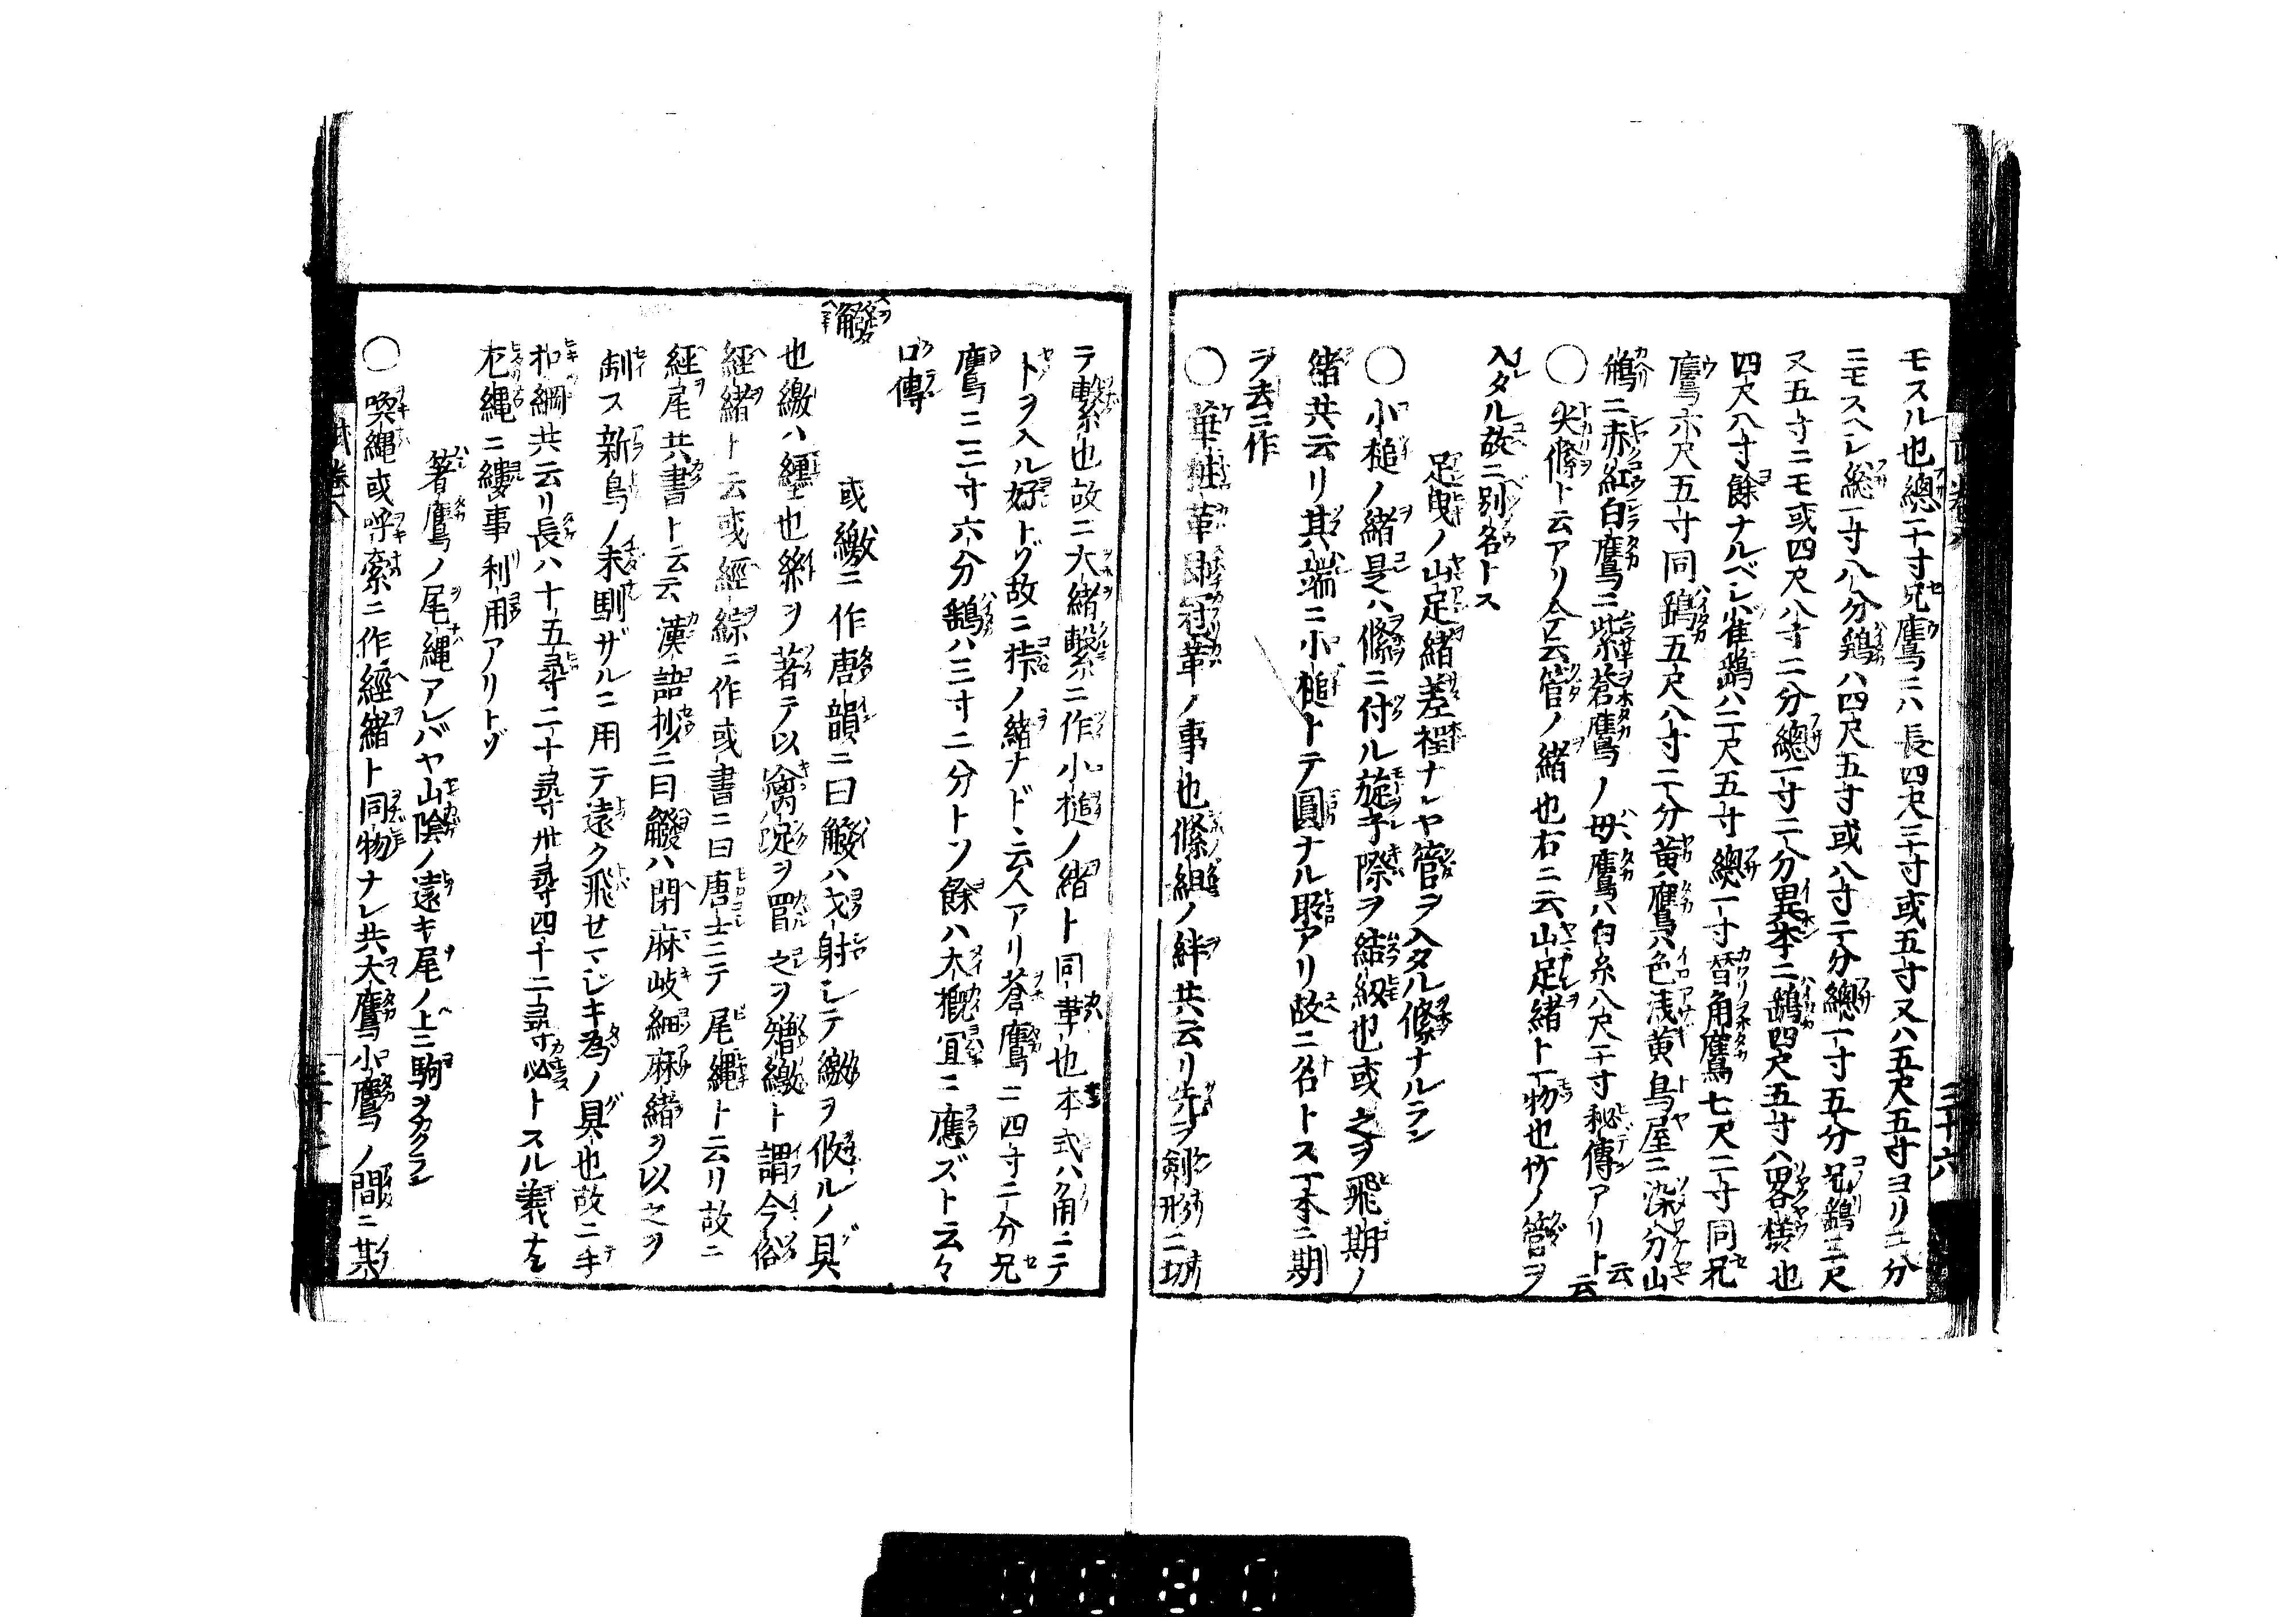 モスル也總一寸兄鷹ニハ長四尺三寸或五寸又ハ五尺五寸ヨリ二分
ニモスヘレ総一寸八分鷂ハ四尺五寸或八寸二分總一寸五分兄鷂三尺
又五寸ニモ或四尺八寸二分總一寸二分異本ニ鷂四尺五寸八畧様也
四尺八寸餘ナルベシ雀鷂ハ二尺五寸總一寸 角鷹七尺二寸同兄
鷹六尺五寸同鷂五尺八寸二分黄鷹ハ色浅黄鳥屋ニ染分山
鴘ニ赤紅白鷹ニ紫蒼鷹ノ毋鷹ハ白糸八尺二寸秘傳アリト云云
○ 尖絛ト云アリ今云管ノ緒也右ニ云山足緒ト一物也竹ノ管ヲ
入タル故ニ別名トス
足曳ノ山足緒差裎ナレヤ管ヲ入タル絛ナルラン
○ 小槌ノ緒是ハ絛ニ付ル旋子際ヲ結紉也或之ヲ飛期ノ
緒共云リ其端ニ小槌トテ圓ナル取アリ故ニ名トス一本ニ期
ヲ去ニ作
○ 革 冠革ノ事也絛組ノ絆共云リ先ヲ剣形ニ切
テ繋也故ニ大緒繋ニ作小槌ノ緒ト同革也本式ハ角ニテ
トヲ入ル好トゾ故ニ ノ緒ナドヽ云人アリ蒼鷹ニ四寸二分兄
鷹ニ三寸六分鷂ハ三寸二分トソ餘ハ大概宜ニ應ズト云々
口傳
𦅾 或繳ニ作唐韻ニ曰 ハ弋射シテ繳ヲ ルノ具
也繳ハ纒也樂ヲ著テ以禽足ヲ罥之ヲ矰繳ト謂今俗
經緒ト云或經綜ニ作或書ニ曰唐士ニテ尾縄ト云リ故ニ
經尾共書ト云云漢語抄ニ曰 ハ閇麻岐細麻緒ヲ以之ヲ
制ス新鳥ノ未馴ザルニ用テ遠ク飛セマジキ為ノ具也故ニ手
扣綱共云リ長ハ十五尋二十尋卅尋四十二尋必トスル義ナシ
縄ニ縷事利用アリトゾ
箸鷹ノ尾縄アレバヤ山陰ノ遠キ尾ノ上ニ駒ヲカクラン
○ 喚縄或呼索ニ作經緒ト同物ナレ共大鷹小鷹ノ間ニ其
三十六